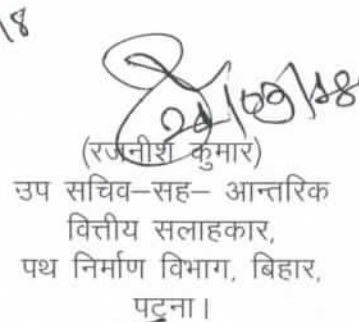 /18
(रजनीश कुमार)
उप सचिव–सह– आन्तरिक
वित्तीय सलाहकार,
पथ निर्माण विभाग, बिहार,
पटना।